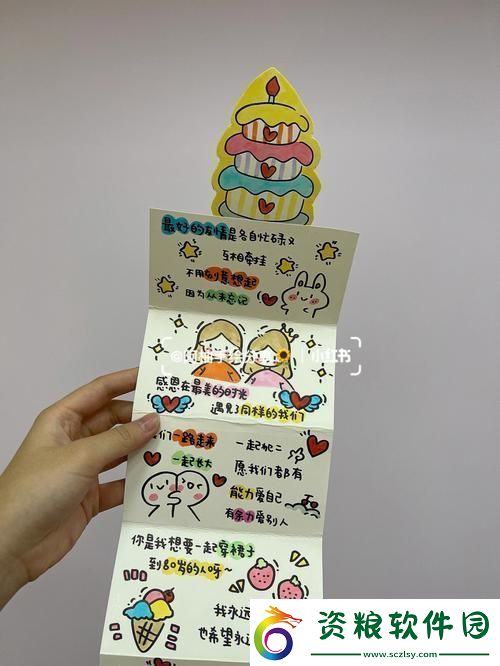 最好的友情是各自忙碌又
互相牵挂
不用刻意想起
因为从未忘记
小红书
感恩在最美的时光
遇见了同样的我们
们一路走来
一起长大
一起
愿我们都有
能力爱自己
有余力爱别人
你是我想要一起穿裙子
到80岁的人呀~
我永远
也希望永
资粮软件园
www.sczlsy.com